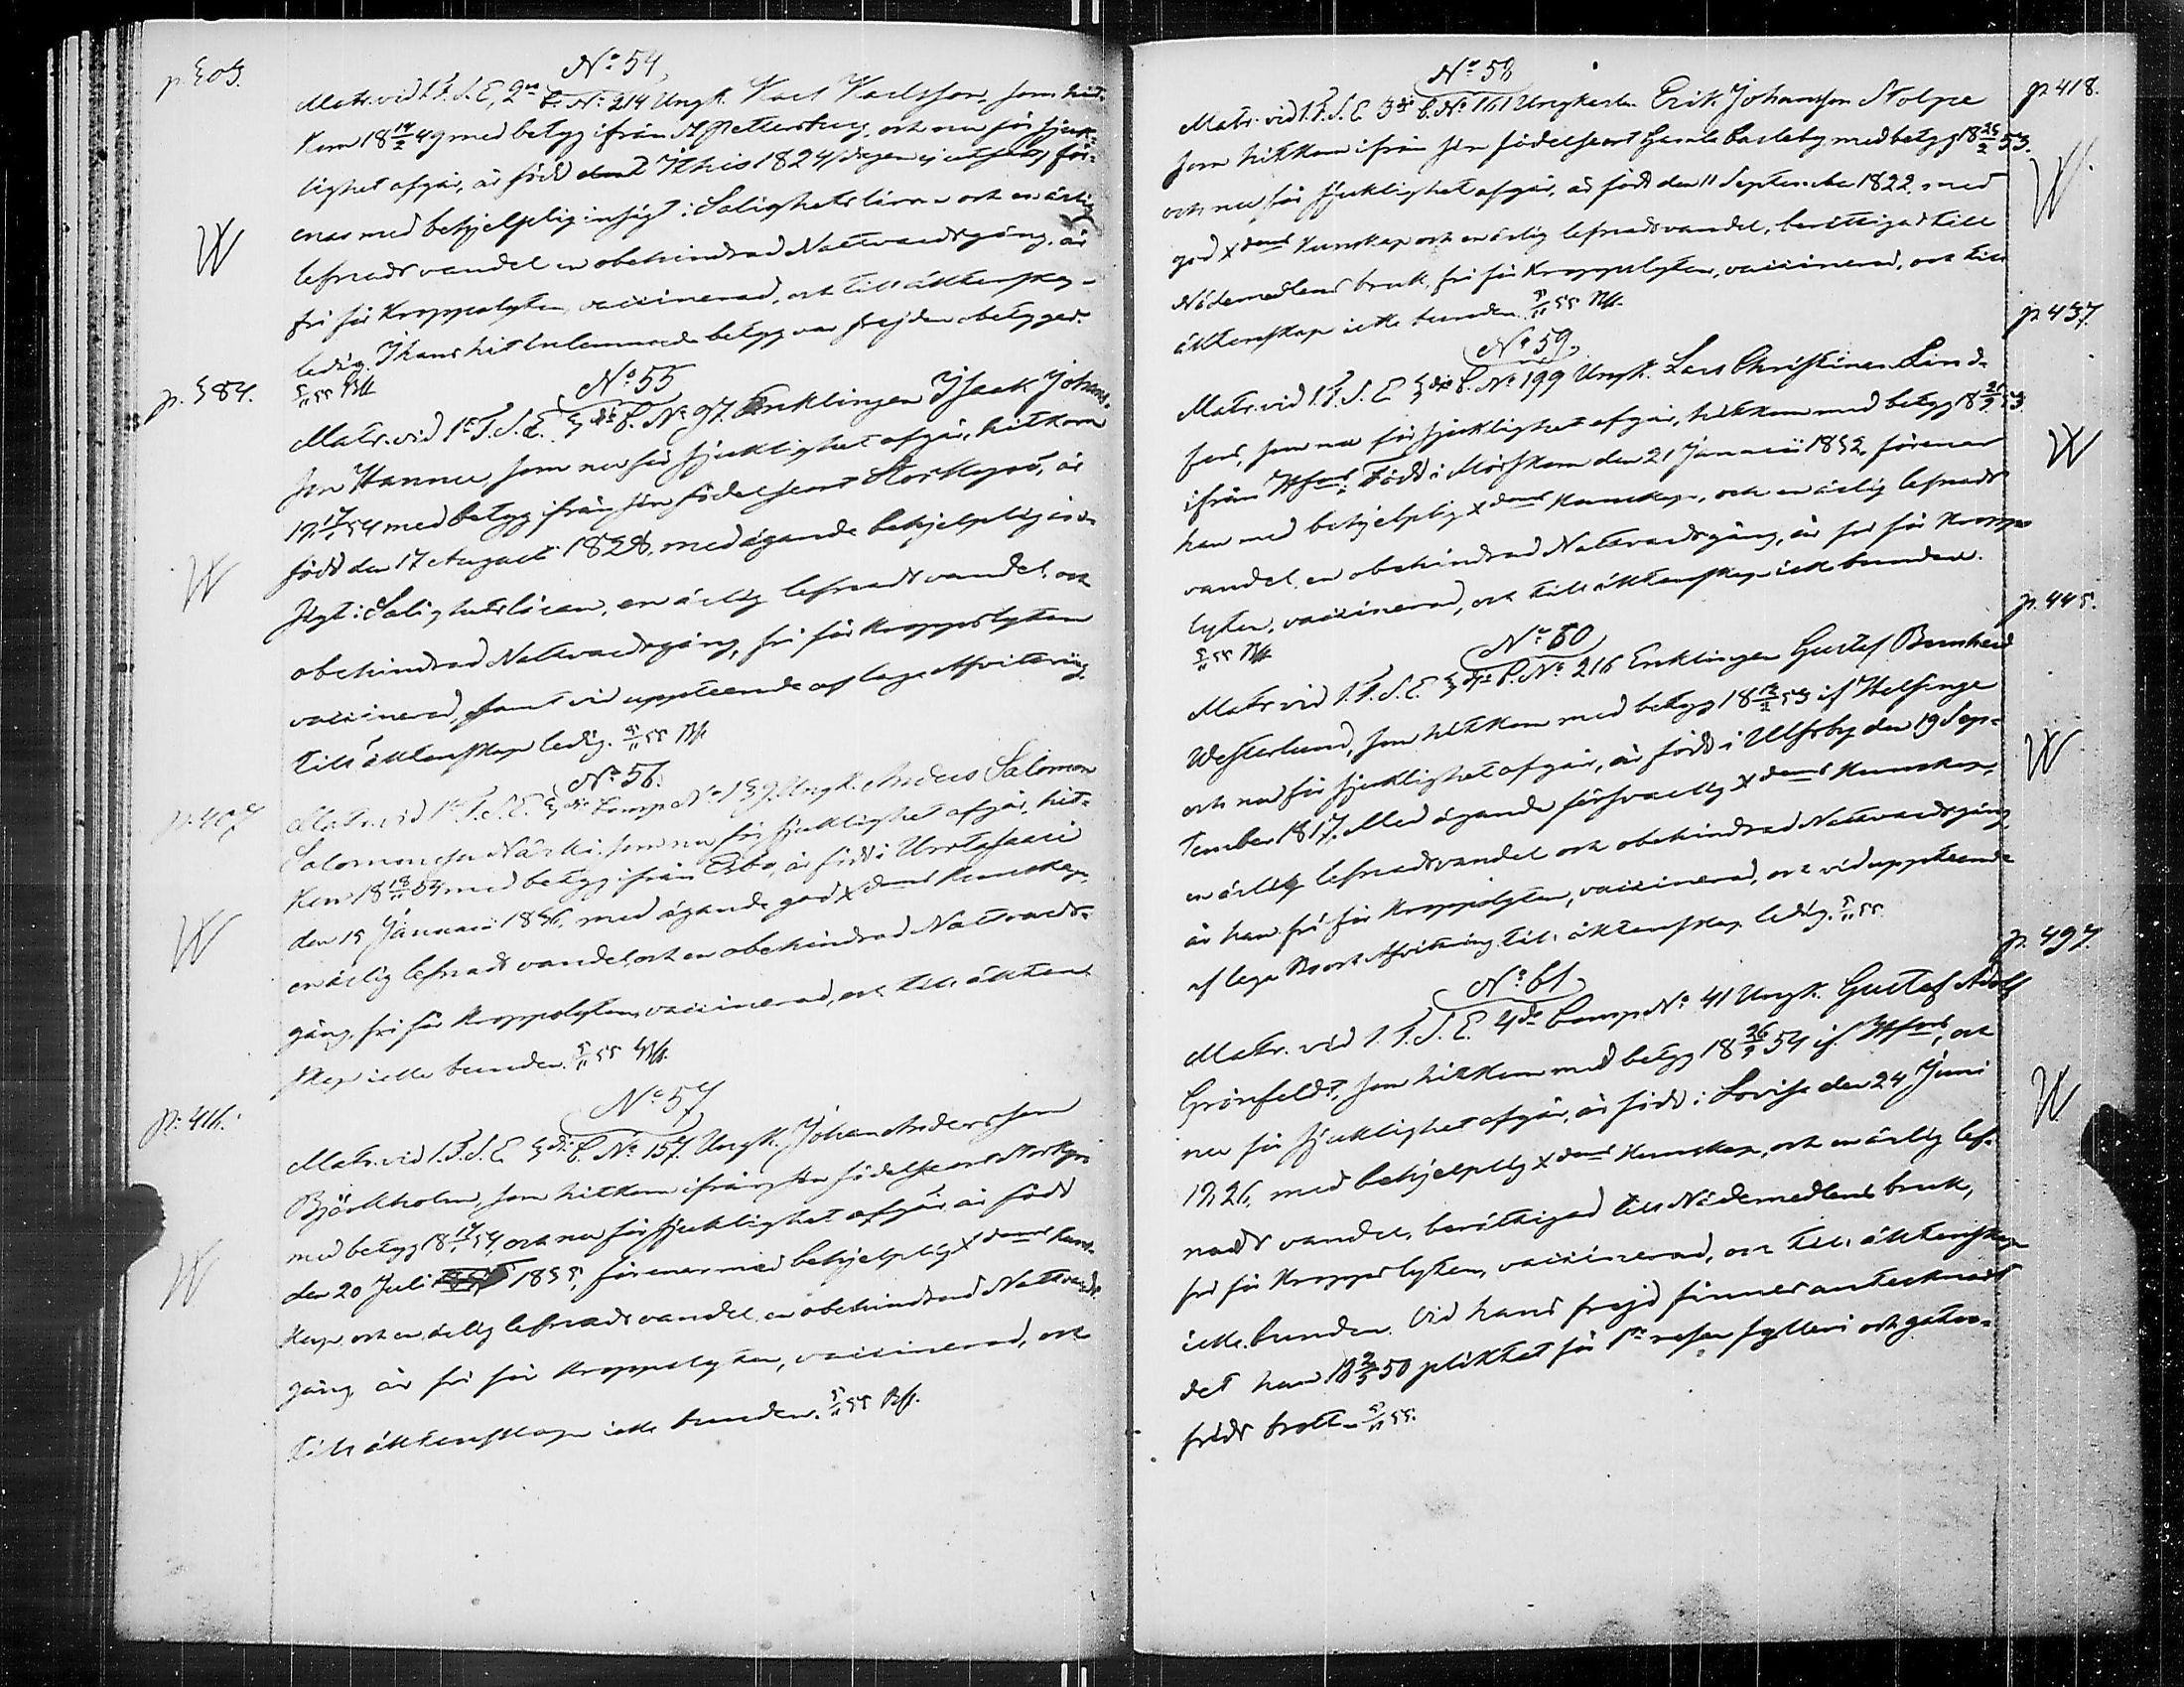 p. 303.
No 54
Matr. vid 1. F. S. E. 2n C. No 214 Ungk. Karl Karlsson, som hit-
kom 18 14/2 49 med betyg ifrån St Petersburg, och nu för sjuk-
lighet afgår, är född 1824 dagen ej utsatt, för-
enar med behjelplig insigt i Salighetslära och en ärlig
lefnadsvandel en obehindrad Nattvardsgång, är
fri för kroppslyten, vaccinerad, och till äktenskap
ledig. I hans hit inlemnade betyg var frejden obetygad.
5/11 55
p. 384.
No 55
Matr. vid 1e F. S. E. 3dje C. No 97. Enklingen Isaak Johans-
son Hannus, som nu för sjuklighet afgår, hitkom
18 17/1 54 med betyg ifrån sin födelseort Storkyrö, är
född den 17 Augusti 1828, med ägande behjelplig in-
sigt i Salighetsläran, en ärlig lefnadsvandel och
obehindrad Nattvardsgång, fri för kroppslyten
vaccinerad, samt vid uppteende af laga Afvittring
till äktenskap ledig. 5/11 55
p. 407
No 56.
Matr. vid 1e F. S. E. 3dje Comp. No 139. Ungk. Anders Salomon
Salomonsson som nu för sjuklighet afgår, hit-
kom 18 18/11 54 med betyg ifrån Esbo, är född i Urstasaari
den 15 Januari 1836, med ägande god Xdoms kunskap,
en ärlig lefnadsvandel och en obehindrad Nattvards-
gång, fri för kroppslyten, vaccinerad, och till äkten-
skap icke bunden. 5/11 55
p. 416.
No 57
Matr. vid 1. F. S. E. 3dje C. No 157. Ungk. Johan Andersson
Björkholm, som hitkom ifrån sin födelseort Storkyrö
med betyg 18 17/1 54, och nu för sjuklighet afgår, är född
den 20 Juli 1835, förenar med behjelplig Xdoms kun-
skap och en ärlig lefnadsvandel en obehindrad Nattvards-
gång, är fri för kroppslyten, vaccinerad, och
till äktenskap icke bunden. 5/11 55
p. 418.
No 58
Matr. vid 1. F. S. E. 3dje C. No 161 Ungkarlen Erik Johansson Stolpe
som hitkom ifrån sin födelseort Gamla Carleby med betyg 18 25/2 53.
och nu för sjuklighet afgår, är född den 11 September 1822, med
god Xdoms kunskap och en ärlig lefnadsvandel, berättigad till
Nådemedlens bruk, fri för kroppslyten, vaccinerad, och till
äktenskap icke bunden. 5/11 55
p. 437.
No 59
Matr. vid 1. F. S. E. 3dje C. No 199 Ungk. Lars Christian Lind-
fors, som nu för sjuklighet afgår, hitkom med betyg 18 21/9 53
ifrån Hfors. Född i Mörskom den 21 Januarii 1832, förenar
han med behjelplig Xdoms kunskap, och en ärlig lefnads-
vandel en obehindrad Nattvardsgång, är fri för kropps-
lyten, vaccinerad, och till äktenskap icke bunden.
5/11 55
p. 445.
No 60
Matr. vid 1. F. S. E. 3dje C. No 216 Enklingen Gustaf Bernhard
Westerlund, som hitkom med betyg 18 12/2 53 if. Helsinge
och nu för sjuklighet afgår, är född i Ulfsby den 19 Sep-
tember 1817. Med ägande försvarlig Xdoms kunskap,
en ärlig lefnadsvandel och obehindrad Nattvardsgång
är han fri för kroppslyten, vaccinerad, och vid uppteende
af laga Afvittring till äktenskap ledig. 5/11 55.
p. 497.
No 61
Matr. vid 1. F. S. E. 4de Comp. No 41 Ungk. Gustaf Adolf
Grönfeldt, som hitkom med betyg 18 26/9 54 if. Hfors, och
nu för sjuklighet afgår, är född i Lovisa den 24 Juni
1826, med behjelplig Xdoms kunskap, och en ärlig lef-
nadsvandel, berättigad till Nådemedlens bruk,
fri för kroppslyten, vaccinerad, och till äktenskap
icke bunden. Vid hans frejd finnes antecknadt
det han 18 2/5 50 pliktat för 1a resan fylleri och gatu-
fridsbrott. 5/11 55.